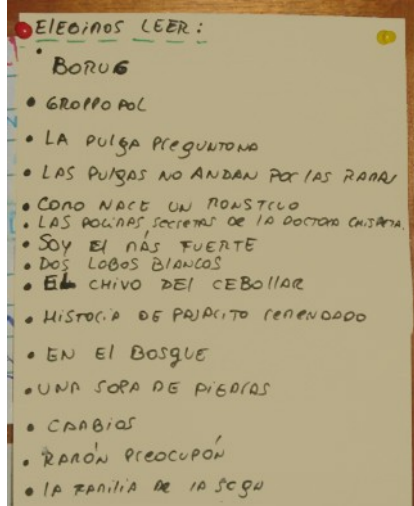 ELEGIMOS LEER:
• BORUG
• GROPPOPOL
• LA PULGA PREGUNTONA
• LAS PULGAS NO ANDAN POR LAS RAMAS
• COMO NACE UN MONSTRUO
• LAS POCIMAS SECRETAS DE LA DOCTORA CHISPETA.
• SOY EL MÁS FUERTE
• DOS LOBOS BLANCOS
• EL CHIVO DEL CEBOLLAR
• HISTORIA DE PAJARITO REMENDADO
• EN EL BOSQUE
• UNA SOPA DE PIEDRAS
• CAMBIOS
• RAMÓN PREOCUPÓN
• LA FAMILIA DE LA